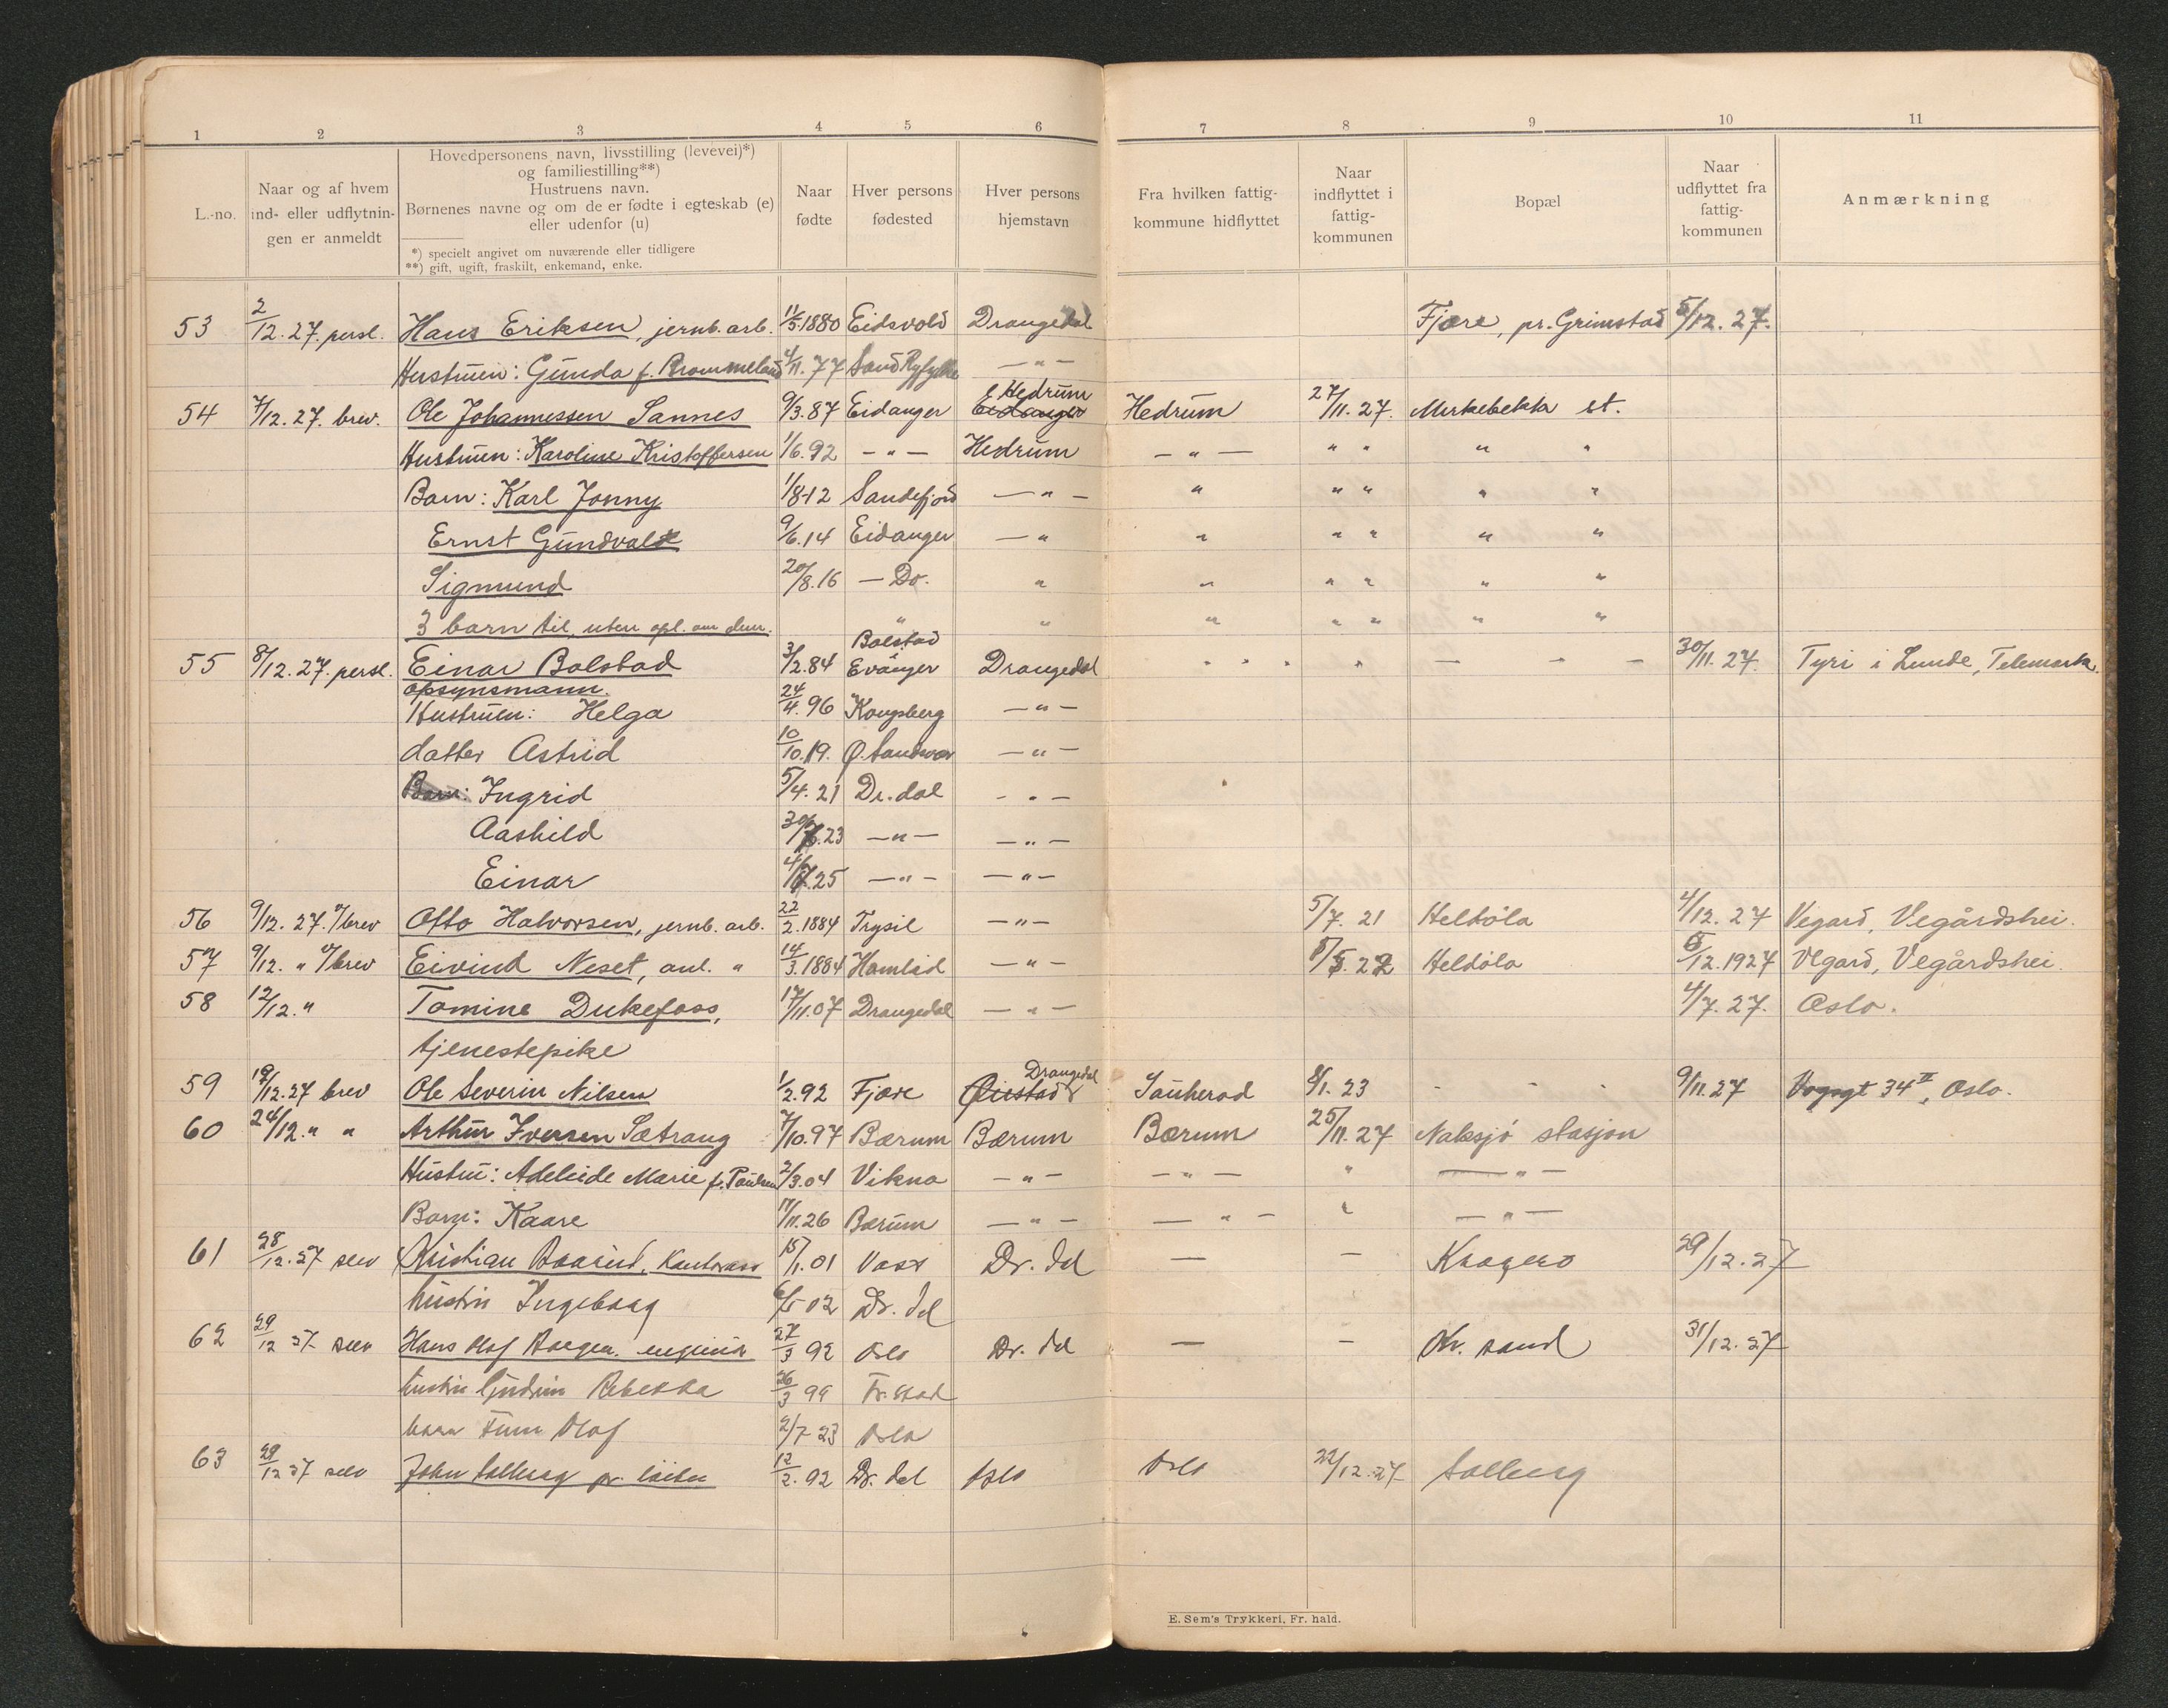 1 2 3 4 5 6 7 8 9 10 11
L.-no.
Naar og af hvem ind- eller udflytnin- gen er anmeldt
Hovedpersonens navn, livsstilling (levevei)*)
og familiestilling**)
Hustruens navn.
Børnenes navne og om de er fødte i egteskab (e)
eller udenfor (u)
*) specielt angivet om nuværende eller tidligere
**) gift, ugift, fraskilt, enkemand, enke.
Naar fødte
Hver persons fødested
Hver persons hjemstavn
Fra hvilken fattig- kommune hidflyttet
Naar indflyttet i fattig- kommunen
Bopæl
Naar udflyttet fra fattig- kommunen
Anmærkning
53 2/12.27. persl. Hans Eriksen, jernb. arb. 11/5.1880 Eidsvold Drangedal Fjære, pr. Grimstad 5/12.27.
Hustruen: Gunda f. Brommeland 4/11.77 Sand Ryfylke — " —
54 7/12.27. brev. Ole Johannessen Sannes 9/3.87 Eidanger Eidanger Hedrum Hedrum 27/11.27. Merkebekka st.
Hustruen: Karoline Kristoffersen 1/6.92 — " — Hedrum — " — " " " "
Barn: Karl Jonny 1/8-12 Sandefjord — " — " " " " "
Ernst Gundvald 9/6.14 Eidanger — " " " " " "
Sigmund 20/8.16 — Do. " " " " " "
3 barn til, uten opl. om dem. " " " " " " "
55 8/12.27. persl. Einar Bolstad 3/2.84 Bolstad Evanger Drangedal " " " " — — — 30/11.27. Tyri i Lunde, Telemark.
opsynsmann.
Hustruen: Helga 24/4.96 Kongsberg — " —
datter Astrid 10/10.19. Ø. Sandsvær — " —
Barn: Ingrid 5/4.21 Dr.dal — " —
Aashild 30/6.23 — " — — " —
Einar 4/6.25 — " — — " —
56 9/12.27. v/brev Otto Halvorsen, jernb. arb. 22/2.1884 Trysil — " — 5/7.21 Heldøla 4/12.27 Vegard, Vegårdshei.
57 9/12. " v/brev Eivind Neset, anl. " 14/3.1884 Homlid — " — 8/5.22 Heldøla 6/12.1927 Vegard, Vegårdshei.
58 12/12. " Tomine Dukefoss, 17/11.07 Drangedal — " — 4/7.27. Oslo.
tjenestepike
59 19/12.27 brev Ole Severin Nilsen 1/2.92 Fjære Øiestad Drangedal Sauherad 8/1.23 - - - 9/11.27 Vogngt 34 II, Oslo.
60 24/12. " " Arthur Iversen Sætrang 7/10.97 Bærum Bærum Bærum 25/11.27 Naksjø stasjon
Hustru: Adeleide Marie f. Paulsen 2/3.04 Vikna — " — — " — " — " —
Barn: Kaare 17/11.26 Bærum — " — — " — " — " —
61 28/12.27 selv Kristian 15/1.01 Voss Dr. dal — — Kragerø 29/12.27
hustru Ingeborg 6/5 02 Dr. dal
62 29/12 27 selv Hans Olaf 27/3 92 Oslo Dr. dal — — Kr. sand 31/12.27
hustru Gudrun Rebekka 26/3 99 Fr. stad
barn Finn Olaf 2/7 23 Oslo
63 29/12 27 selv John Solberg 12/2.92 Dr. dal Oslo Oslo 22/12.27 Solberg
E. Sem's Trykkeri, Fr. hald.